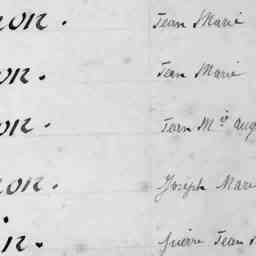 non. Jean Marie
on. Jean Marie
on. Jean Mie aug
non. Joseph Marie
in. Jean